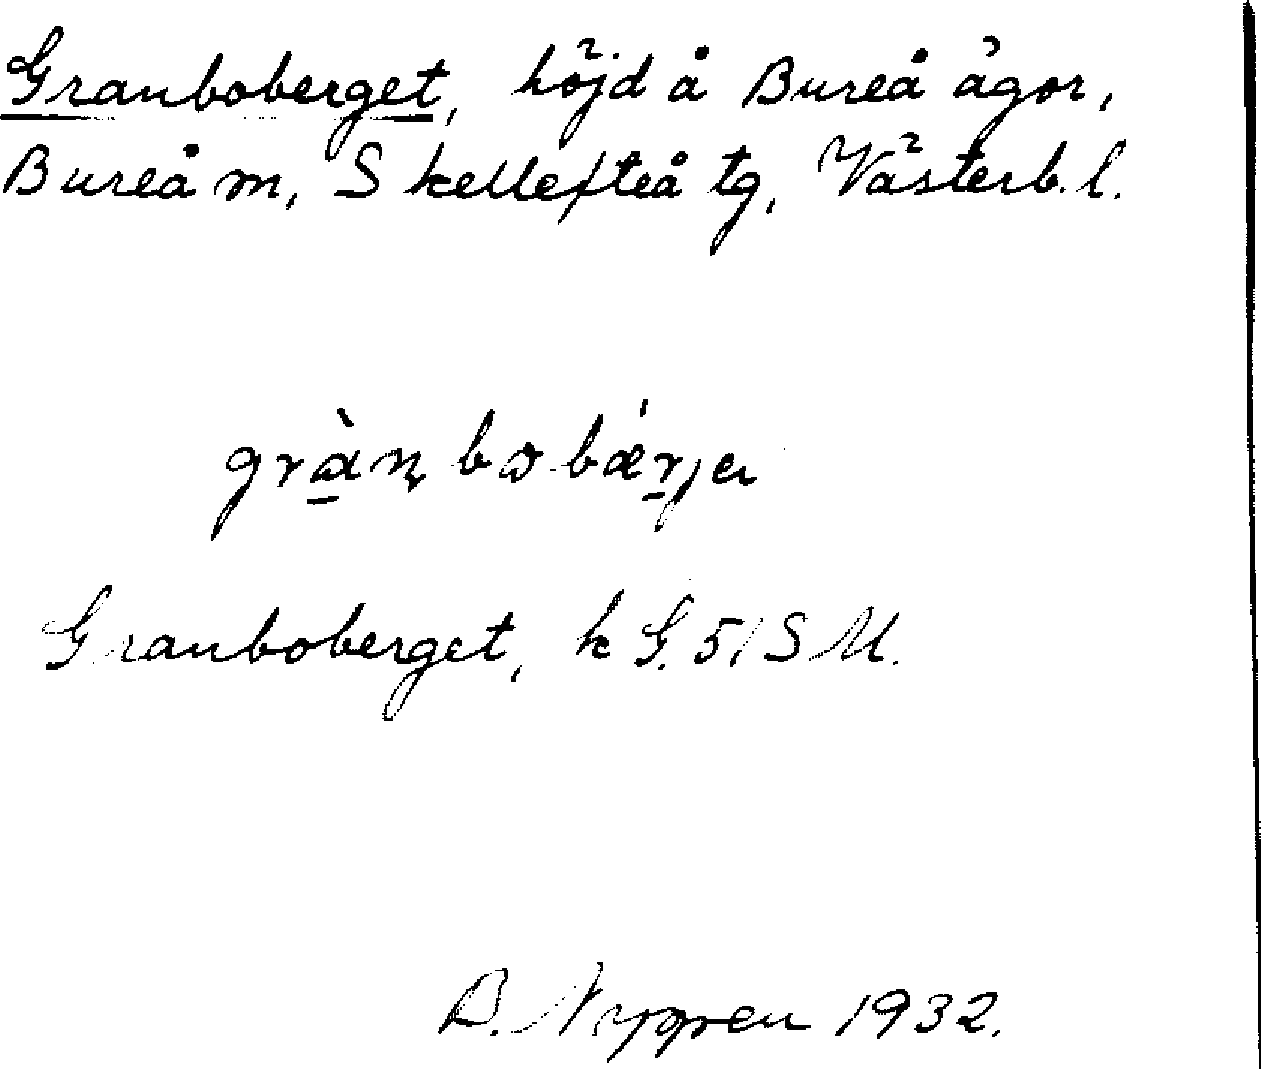 Granboberget, höjd å Bureå ägor,
Bureå m, Skellefteå tg, Västerb. l.
grànbobǽrjen
Granboberget, k G. 51 S M.
B. Nygren 1932.